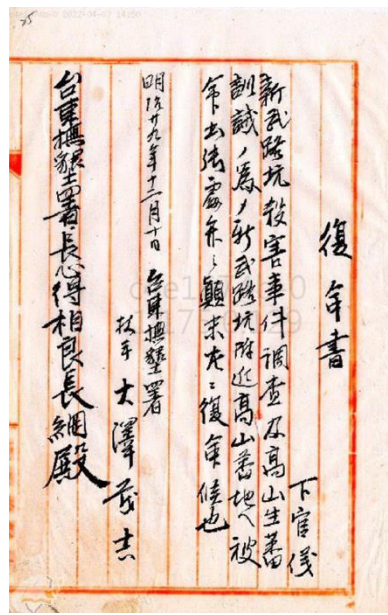 復命書
下官儀
新武路坑殺害事件調査及高山生蕃
訓誡ノ爲メ新武路坑附近高山蕃地ヘ被
命出張處分ノ顛末左ニ復命候也
明治廿九年十二月十日 台東撫墾署
技手 大澤茂吉
台東撫墾署長心得相良長綱殿